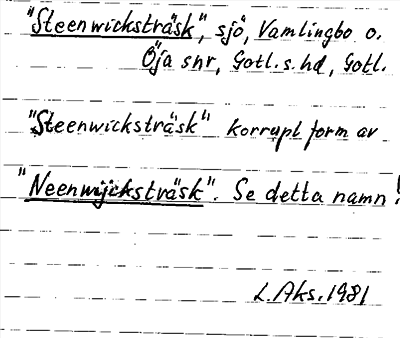 "Steenwicksträsk", sjö, Vamlingbo o.
Öja snr, Gotl. s. hd, Gotl.
"Steenwicksträsk" korrupt form av
"Neenwijcksträsk". Se detta namn!
L. Aks. 1981